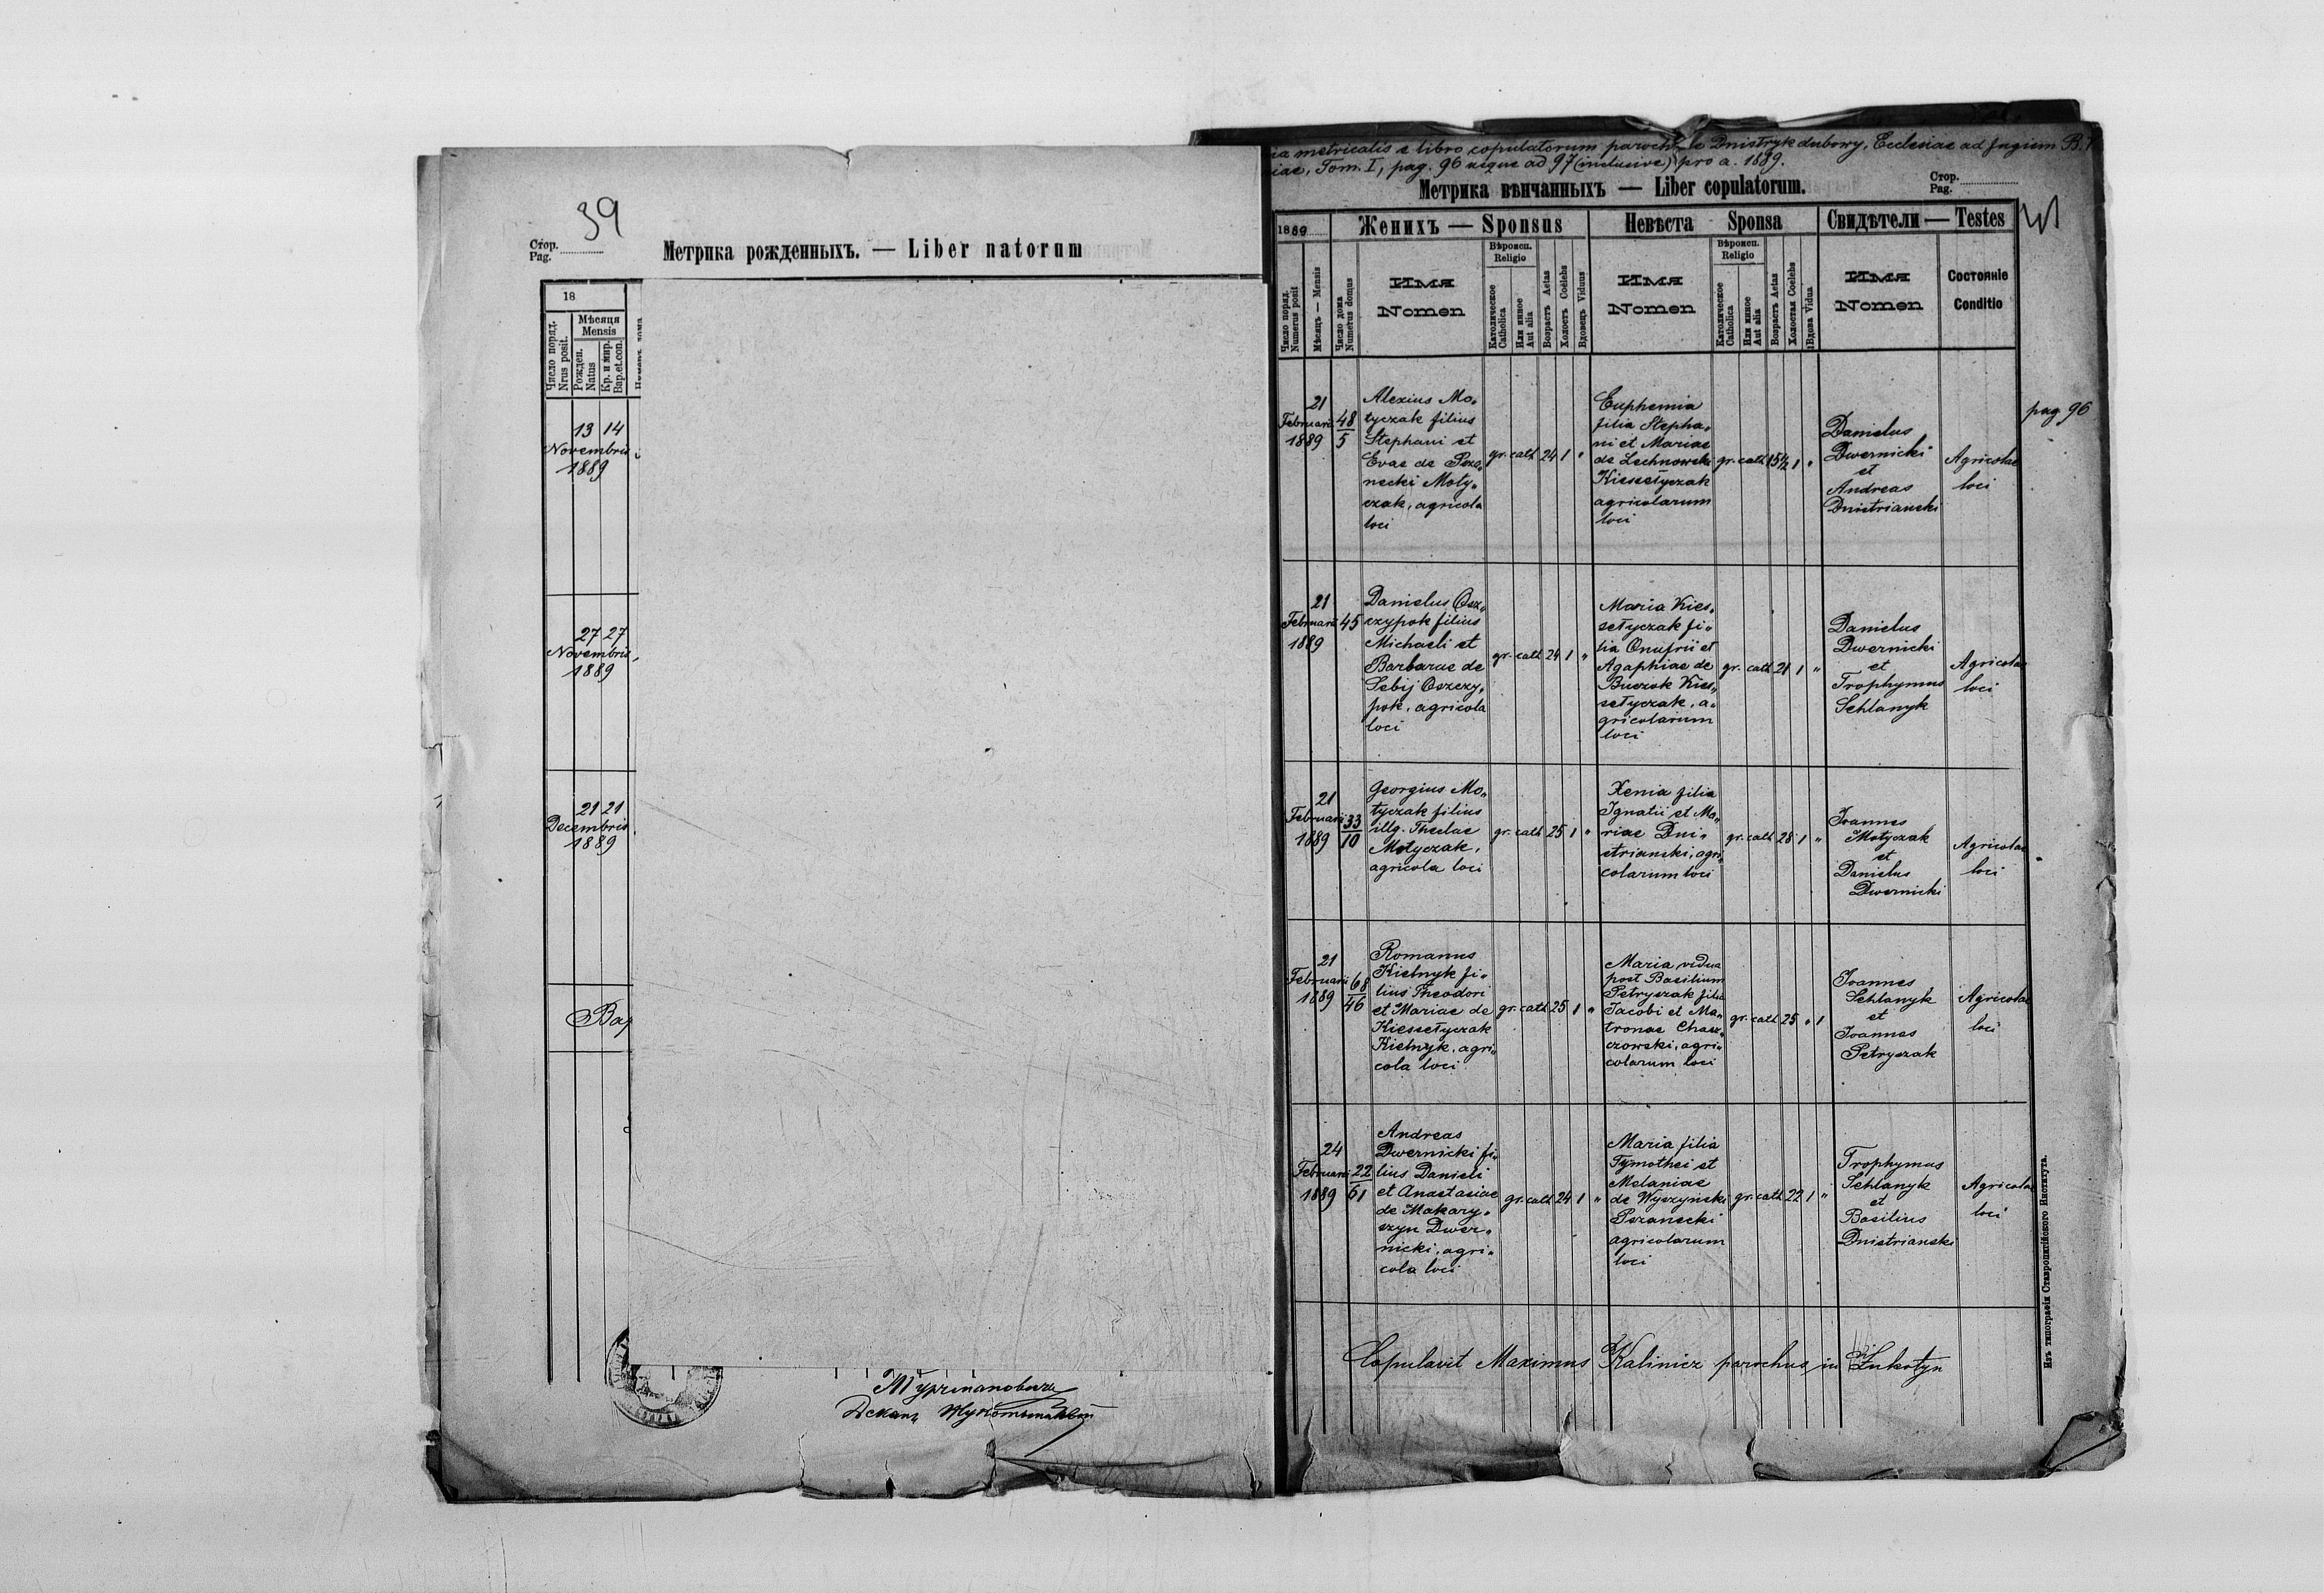 39
Стор.
Pag.
Метрика рожденныхъ. — Liber natorum
18
Число поряд.
Nrus posit.
Мѣсяця
Mensis
Рожден.
Natus
Кр. и мѵр.
Bap.et.con.
13 14
Novembris
1889
27 27
Novembris
1889
21 21
Decembris
1889
Деканъ
metricalis e libro copulatorum Dnistryk dubowy, Ecclesiae ad fugiem B.
Tom. I, pag. 96 usque ad 97 (inclusive) pro a. 1889.
Метрика вѣнчанныхъ — Liber copulatorum.
Стор.
Pag.
1889
Женихъ — Sponsus
Невѣста Sponsa
Свидѣтели — Testes
Число поряд.
Numerus posit
Мѣсяцъ — Mensis
Число дома
Numerus domus
Имя
Nomen
Вѣроисп.
Religio
Католическое
Catholica
Или иное
Aut alia
Возрастъ Aetas
Холостъ Coelebs
Вдовецъ Viduus
Имя
Nomen
Вѣроисп.
Religio
Католическое
Catholica
Или иное
Aut alia
Возрастъ Aetas
Холостая Coelebs
Вдова Vidua
Имя
Nomen
Состояніе
Conditio
pag 96
21
Februarii
1889
48
5
Alexius Mo„
tyczak filius
Stephani et
Evae de Psze„
necki Moty„
czak, agricola
loci
gr. cath 24 1 "
Euphemia
filia Stepha„
ni et Mariae
de Lechnowski
Kiessetyczak
agricolarum
loci
gr. cath 15½ 1 "
Danielus
Dwernicki
et
Andreas
Dnistrianski
Agricolae
loci
21
Februarii
1889
45
Danielus Osz„
czypok filius
Michaeli et
Barbarae de
Sebij Oszczy„
pok, agricola
loci
gr. cath 24 1 "
Maria Kies„
setyczak fi„
lia Onufrii et
Agaphiae de
Buczok Kies„
setyczak, a„
gricolarum
loci
gr. cath 21 1 "
Danielus
Dwernicki
et
Trophymus
Sehlanyk
Agricolae
loci
21
Februarii
1889
33
10
Georgius Mo„
tyczak filius
illg. Theclae
Motyczak,
agricola loci
gr. cath 25 1 "
Xenia filia
Ignatii et Ma„
riae Dni„
strianski, agri„
colarum loci
gr. cath 28 1 "
Joannes
Motyczak
et
Danielus
Dwernicki
Agricolae
loci
21
Februarii
1889
68
46
Romanus
Kielnyk fi„
lius Theodori
et Mariae de
Kiessetyczak
Kielnyk, agri„
cola loci
gr. cath 25 1 "
Maria vidua
post Basilium
Petryszak filia
Jacobi et Ma„
tronae Chasz„
czowski, agri„
colarum loci
gr. cath 25 " 1
Joannes
Sehlanyk
et
Joannes
Petryszak
Agricolae
loci
24
Februarii
1889
22
61
Andreas
Dwernicki fi„
lius Danieli
et Anastasiae
de Makary„
szyn Dwer„
nicki, agri„
cola loci
gr. cath 24 1 "
Maria filia
Tymothei et
Melaniae
de Wyszyński
Pszanecki
agricolarum
loci
gr. cath 22 1 "
Trophymus
Sehlanyk
et
Basilius
Dnistrianski
Agricolae
loci
Copulavit Maximus Kalinicz parochus in
Изъ типографіи Ставропигійского Института.